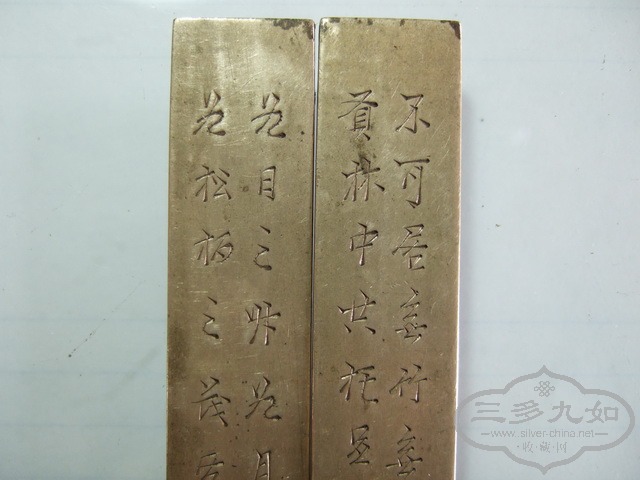 不可居無竹無
林中共
如日之升如月
如松柏之茂
三多九如
www.silver-china.net
·收·藏·网·